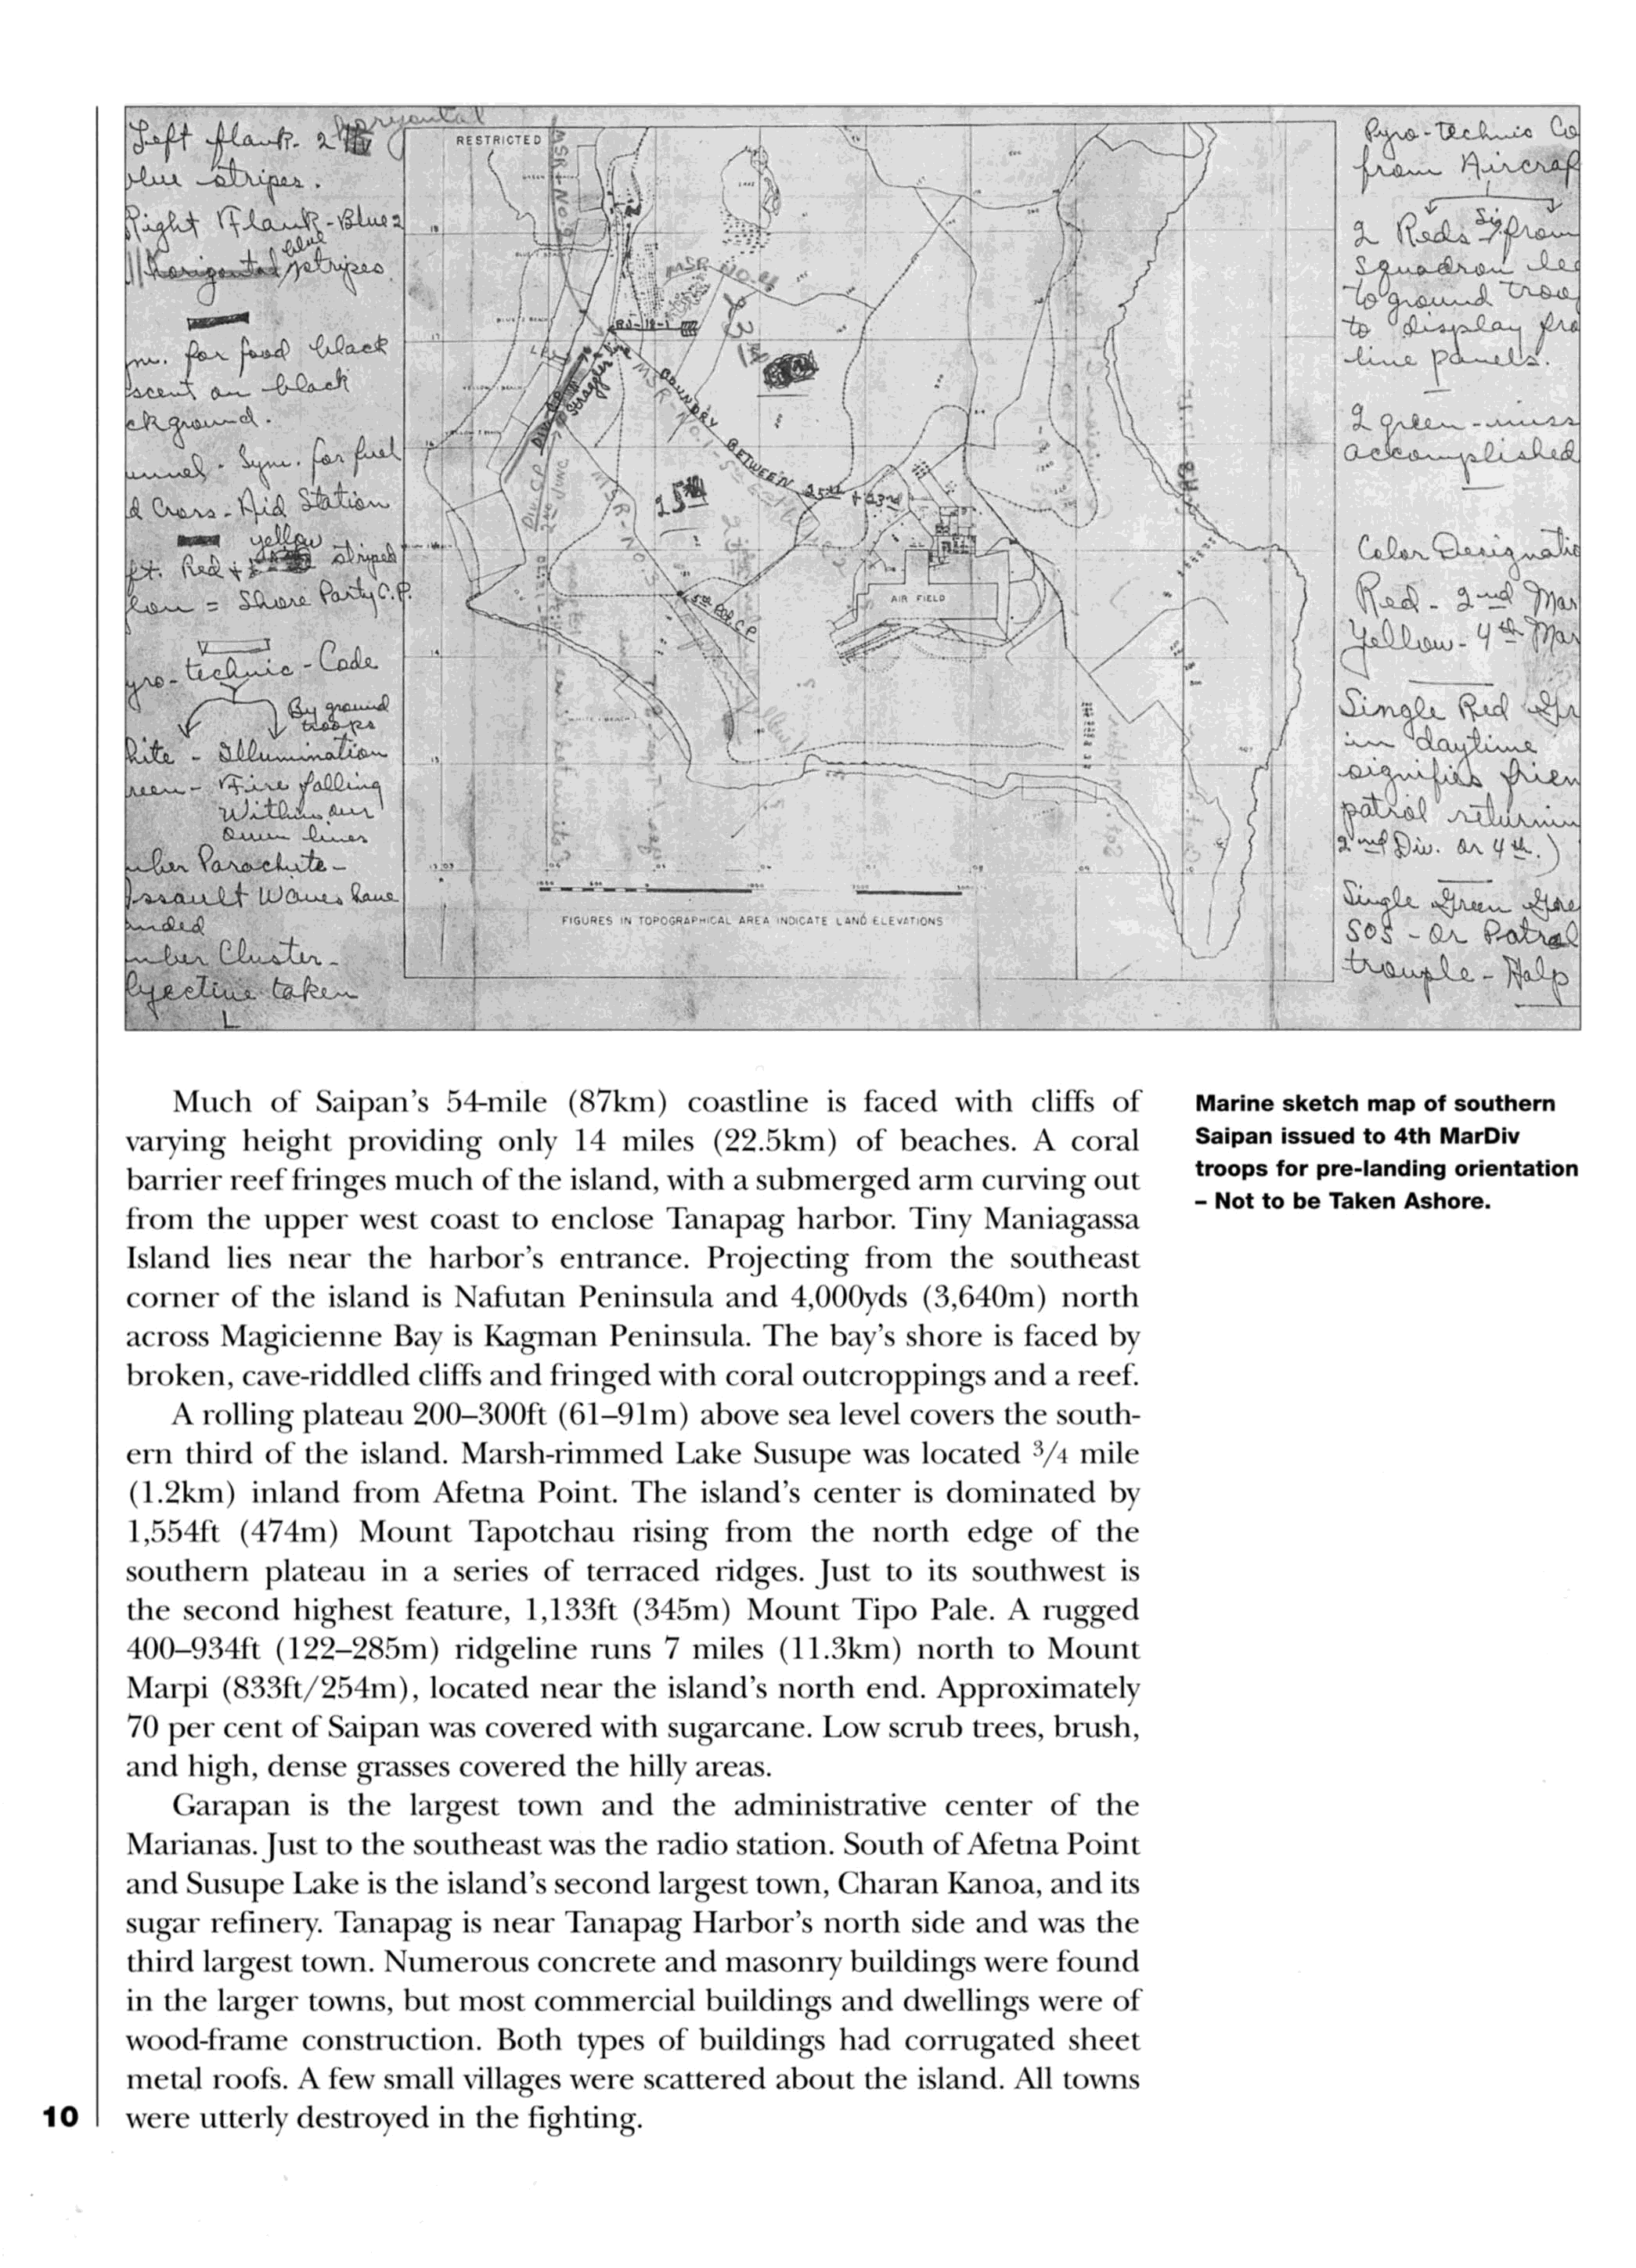 Left flank - 2 horizontal
blue stripes.
Right Flank - Blue 2
horizontal blue stripes.
for food black
on black
Sym. for fuel
Cross - Aid Station
yellow
Red + striped
= Shore Party C.P.
technic - Code
By ground
troops
- Illumination
- Fire falling
Within our
own lines
Parachute -
Assault Waves have
Cluster -
taken
RESTRICTED
MSR - No. 2
LAKE
MSR NO. 4
RJ-18-1
23rd
Straggler line
MSR - No. 1
BOUNDRY BETWEEN 25th + 23rd
25th
DIV CP
MSR - NO 3
5th C.P.
AIR FIELD
WHITE 1 BEACH
FIGURES IN TOPOGRAPHICAL AREA INDICATE LAND ELEVATIONS
Pyro-technic Co
from Aircraf
2 Reds from
squadron
to ground
to display
line panels.
2 green - miss
accomplished
Color Designatio
Red - 2nd Mar
Yellow - 4th Mar
Single Red
in daytime
signifies frien
patrol returnin
2nd Div. or 4th.)
Single Green
SOS - or Patrol
trouple - Help
Much of Saipan's 54-mile (87km) coastline is faced with cliffs of
varying height providing only 14 miles (22.5km) of beaches. A coral
barrier reef fringes much of the island, with a submerged arm curving out
from the upper west coast to enclose Tanapag harbor. Tiny Maniagassa
Island lies near the harbor's entrance. Projecting from the southeast
corner of the island is Nafutan Peninsula and 4,000yds (3,640m) north
across Magicienne Bay is Kagman Peninsula. The bay's shore is faced by
broken, cave-riddled cliffs and fringed with coral outcroppings and a reef.
A rolling plateau 200–300ft (61–91m) above sea level covers the south-
ern third of the island. Marsh-rimmed Lake Susupe was located 3/4 mile
(1.2km) inland from Afetna Point. The island's center is dominated by
1,554ft (474m) Mount Tapotchau rising from the north edge of the
southern plateau in a series of terraced ridges. Just to its southwest is
the second highest feature, 1,133ft (345m) Mount Tipo Pale. A rugged
400–934ft (122–285m) ridgeline runs 7 miles (11.3km) north to Mount
Marpi (833ft/254m), located near the island's north end. Approximately
70 per cent of Saipan was covered with sugarcane. Low scrub trees, brush,
and high, dense grasses covered the hilly areas.
Garapan is the largest town and the administrative center of the
Marianas. Just to the southeast was the radio station. South of Afetna Point
and Susupe Lake is the island's second largest town, Charan Kanoa, and its
sugar refinery. Tanapag is near Tanapag Harbor's north side and was the
third largest town. Numerous concrete and masonry buildings were found
in the larger towns, but most commercial buildings and dwellings were of
wood-frame construction. Both types of buildings had corrugated sheet
metal roofs. A few small villages were scattered about the island. All towns
were utterly destroyed in the fighting.
Marine sketch map of southern
Saipan issued to 4th MarDiv
troops for pre-landing orientation
– Not to be Taken Ashore.
10